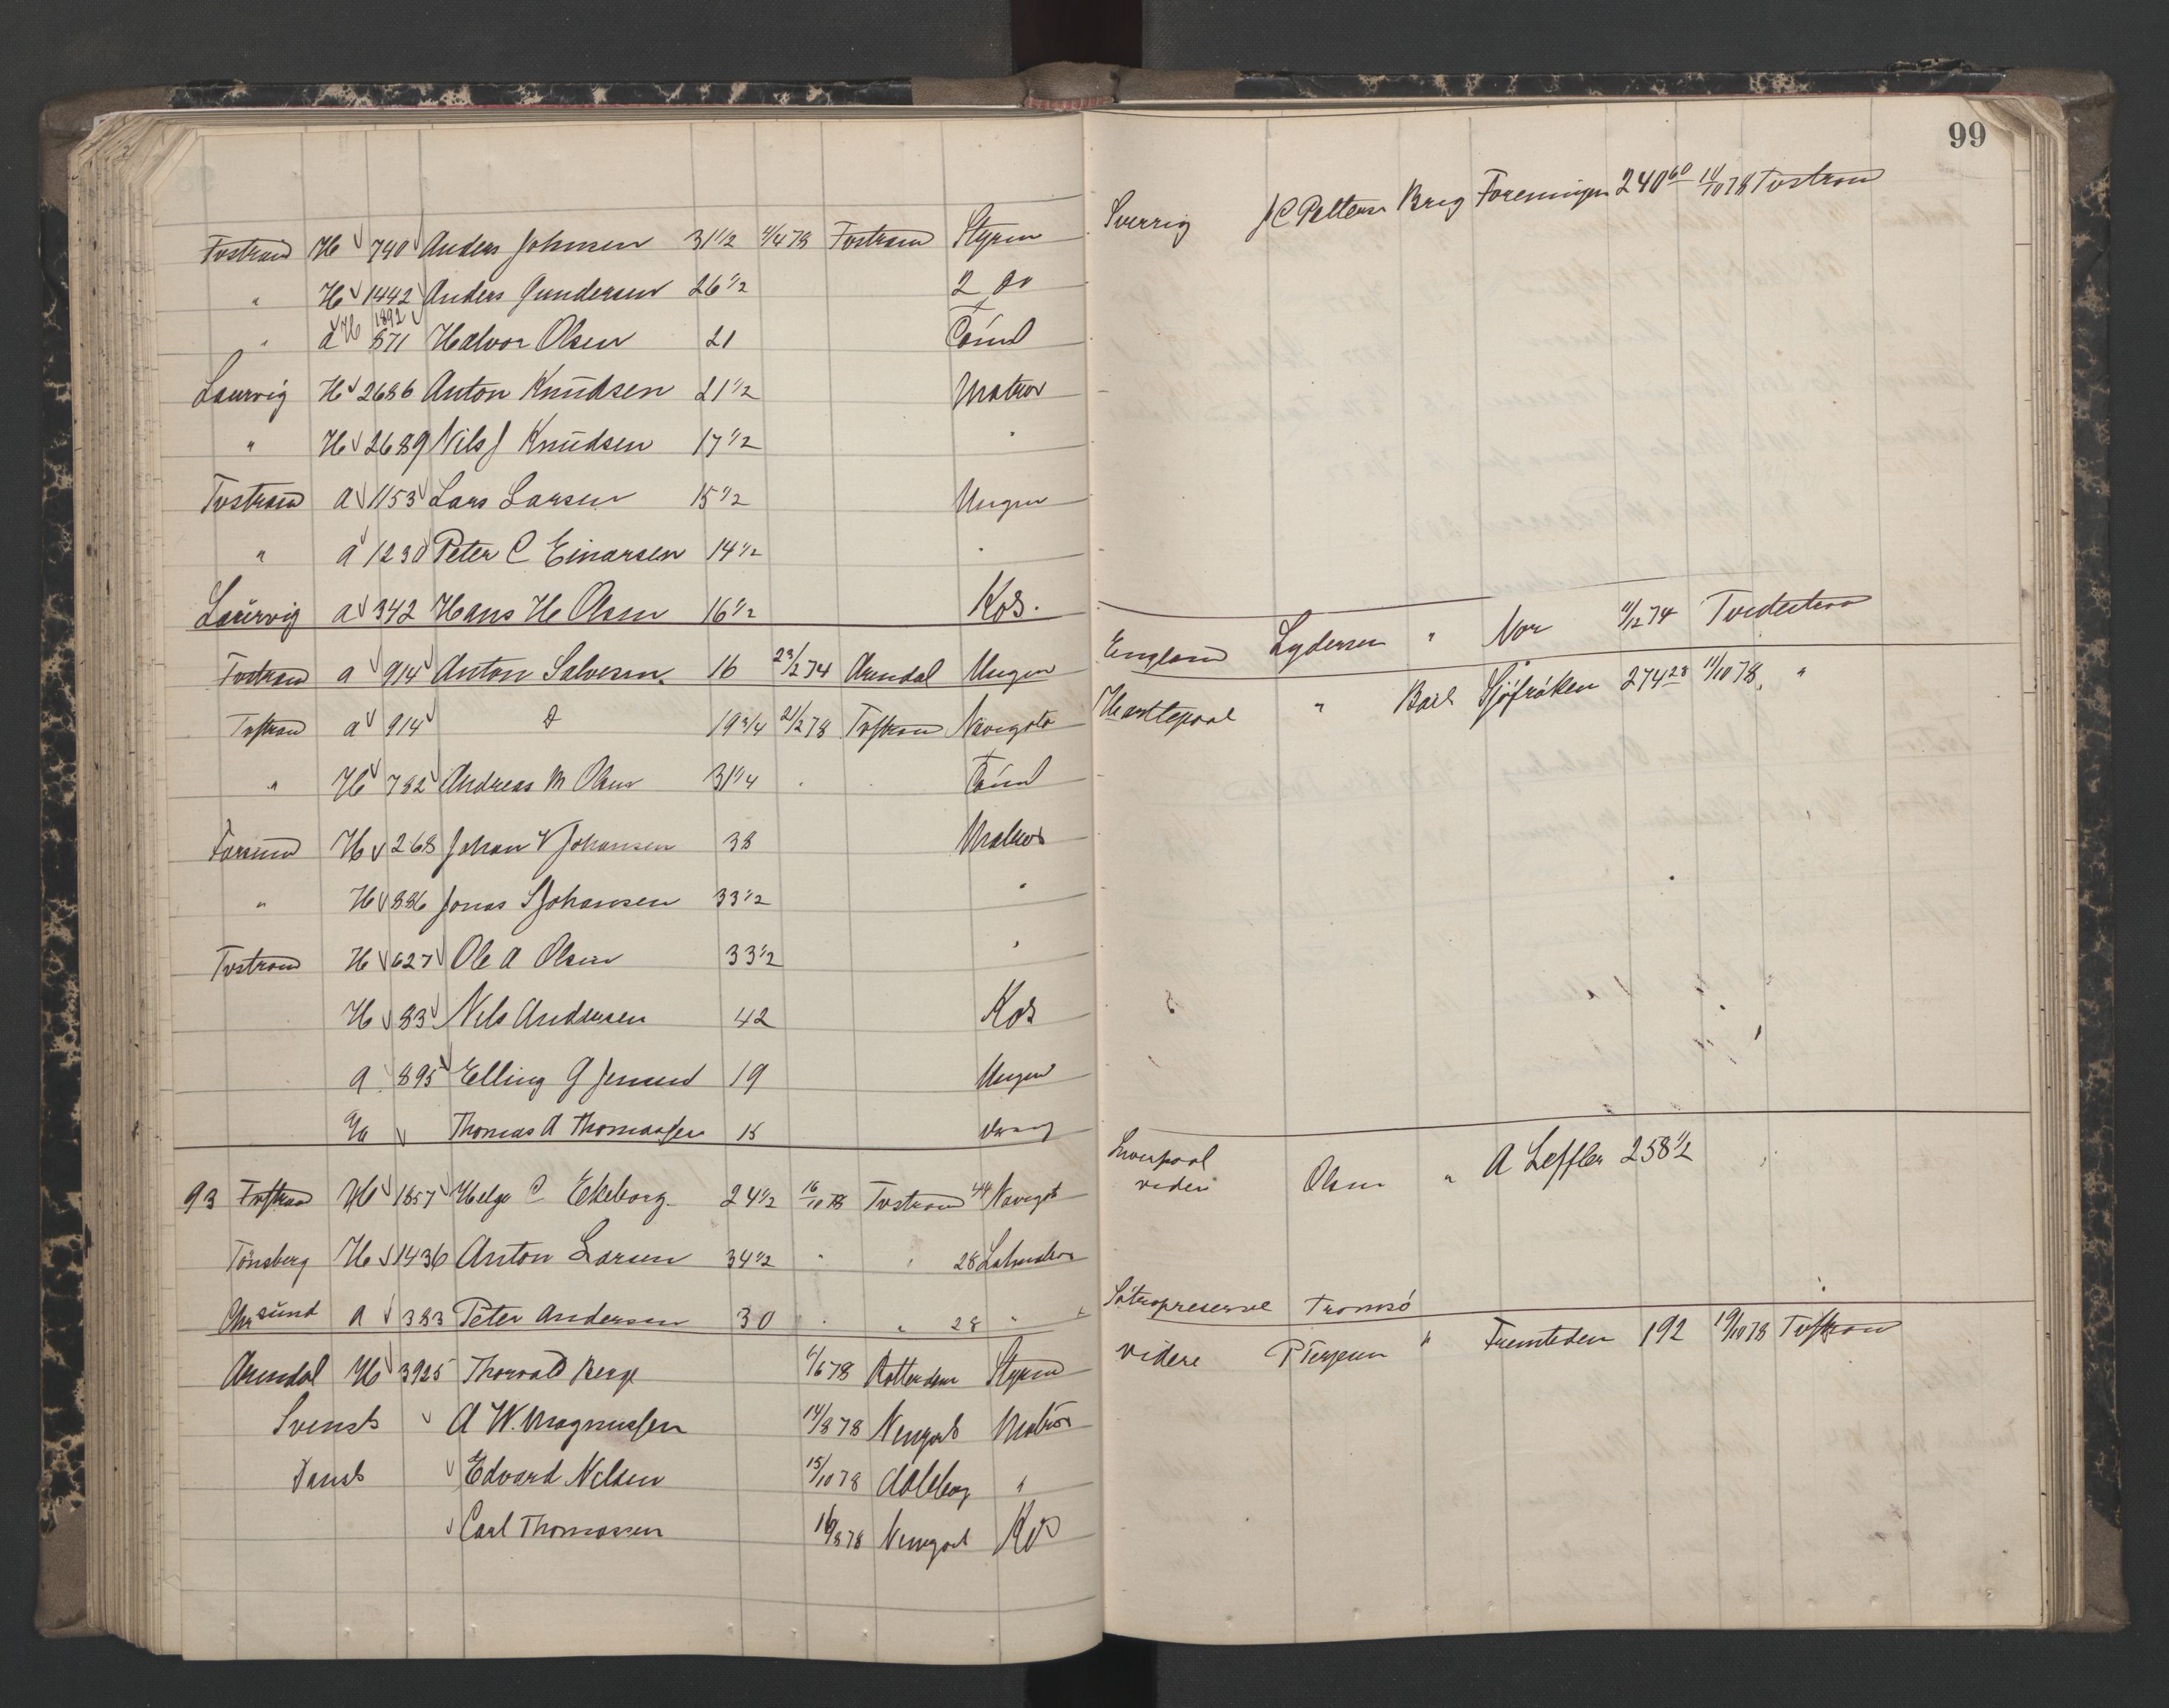 99
Tvstrand H 740 Anders Johnsen 31 1/2 4/4 78 Tvstrand Styrm
" H 1442 Anders Gundersen 26 1/2 2 do
" a H 1892 871 Halvor Olsen 21 Tömd
Laurvig H 2686 Anton Knudsen 21 1/2 Matros
" H 2689 Nils J Knudsen 17 1/2 "
Tvstrand a 1153 Lars Larsen 15 1/2 Ungm
" a 1230 Peter C Einarsen 14 1/2 "
Laurvig a 342 Hans H Olsen 16 1/2 Kok.
Tvstrand a 914 Anton Salvesen 16 23/2 74 Arendal Ungm
Tvstrand a 914 D 19 3/4 21/2 78 Tvstrand Navigatø
" H 782 Andreas M Olsen 31 1/4 " " Tömd
Farsund H 268 Johan V Johansen 38 Matros
" H 886 Jonas S Johansen 33 1/2 "
Tvstrand H 627 Ole A Olsen 33 1/2 "
H 83 Nels Andersen 42 Kok
a 895 Elling G Jensen 19 Ungm
Thomas A Thomassen 15
93 Tvstrand H 1857 Helge C Ekeborg 24 1/2 16/10 78 Tvstrand 44 Navigat
Tönsberg H 1436 Anton Larsen 34 1/2 " " 28
Chrsund a 383 Peter Andersen 30 " " 28 "
Arendal H 3925 Thorvald Berge 4/6 78 Rotterdam Styrmd
Svensk A W. Magnussen 14/8 78 Newyork Matros
Dansk Edvard Nilsen 15/10 78 Aalborg "
Carl Thomassen 16/8 78 Newyork Kok
Sverrig J C Pettersen Brig Foreningen 240 60 14/10 78 Tvstrand
England Lydersen " Nor 11/12 74 Tvedestrand
Hartlepool " Bark Sjöfröken 274 28 11/10 78 "
Liverpool
videre Olsen " A Leffler 258 1/2 "
Tromsö "
videre P Terjesen " Fremtiden 192 19/10 78 Tvstrand